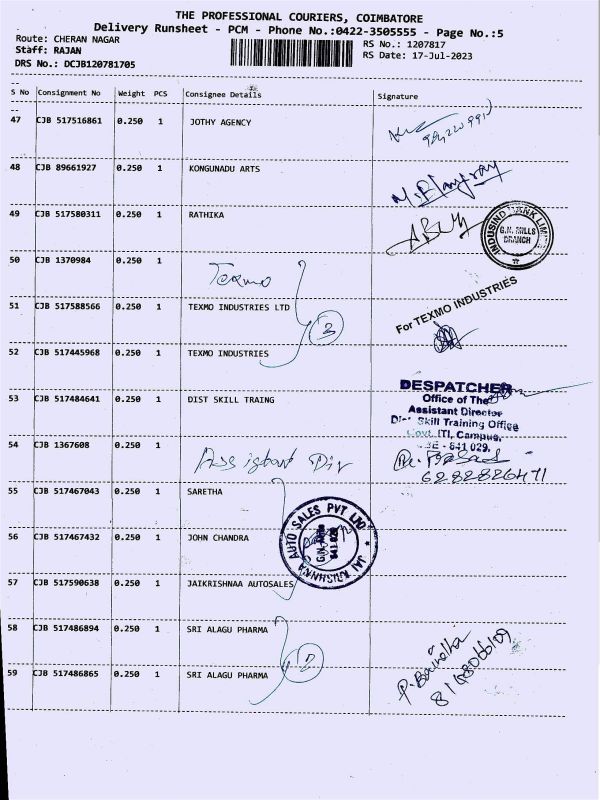 THE PROFESSIONAL COURIERS, COIMBATORE
Delivery Runsheet - PCM - Phone No.:0422-3505555 - Page No.:5
Route: CHERAN NAGAR
Staff: RAJAN
DRS No.: DCJB120781705
RS No.: 1207817
RS Date: 17-Jul-2023
S No Consignment No Weight PCS Consignee Details Signature
47 CJB 517516861 0.250 1 JOTHY AGENCY
48 CJB 89661927 0.250 1 KONGUNADU ARTS
49 CJB 517580311 0.250 1 RATHIKA
INDUSIND BANK LIMITED
G.N. MILLS
BRANCH
50 CJB 1370984 0.250 1
Texmo
51 CJB 517588566 0.250 1 TEXMO INDUSTRIES LTD
For TEXMO INDUSTRIES
3
52 CJB 517445968 0.250 1 TEXMO INDUSTRIES
53 CJB 517484641 0.250 1 DIST SKILL TRAING
DESPATCHER
Office of The
Assistant Director
Dist Skill Training Office
Govt. ITI, Campus,
CBE - 641 029.
54 CJB 1367608 0.250 1
Assistant Dir
6282826471
55 CJB 517467043 0.250 1 SARETHA
56 CJB 517467432 0.250 1 JOHN CHANDRA
JAI KRISHNNA AUTO SALES PVT LTD
G.N. Mills
641 029
57 CJB 517590638 0.250 1 JAIKRISHNAA AUTOSALES
58 CJB 517486894 0.250 1 SRI ALAGU PHARMA
59 CJB 517486865 0.250 1 SRI ALAGU PHARMA